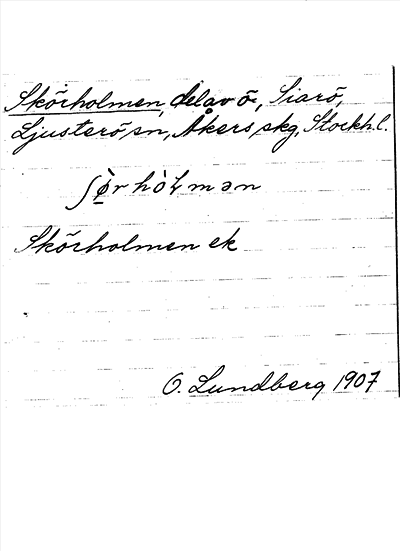 Skörholmen, del av ö, Siarö,
Ljusterö sn, Åkers skg, Stockh. l.
ʃø̀rhòɫmən
Skörholmen ek
O. Lundberg 1907